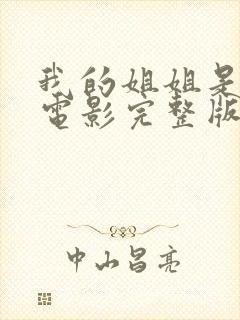 我的姐姐是
電影完整版
中山昌亮